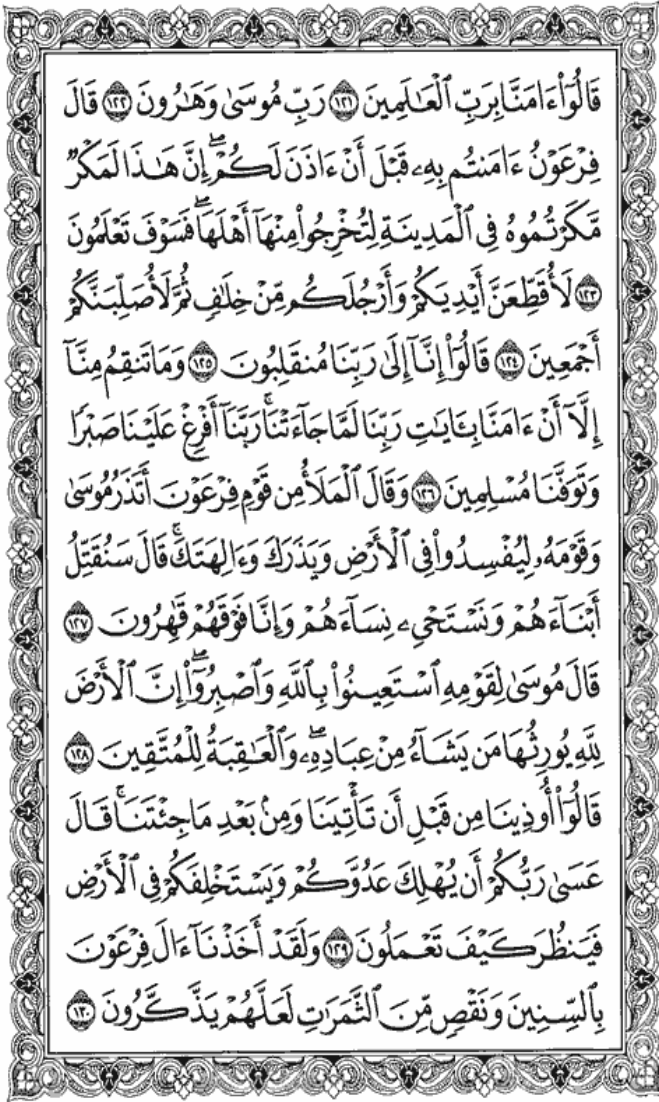 قَالُوٓا۟ ءَامَنَّا بِرَبِّ ٱلْعَٰلَمِينَ ١٢١ رَبِّ مُوسَىٰ وَهَٰرُونَ ١٢٢ قَالَ
فِرْعَوْنُ ءَامَنتُم بِهِۦ قَبْلَ أَنْ ءَاذَنَ لَكُمْ ۖ إِنَّ هَٰذَا لَمَكْرٌ
مَّكَرْتُمُوهُ فِى ٱلْمَدِينَةِ لِتُخْرِجُوا۟ مِنْهَآ أَهْلَهَا ۖ فَسَوْفَ تَعْلَمُونَ
١٢٣ لَأُقَطِّعَنَّ أَيْدِيَكُمْ وَأَرْجُلَكُم مِّنْ خِلَٰفٍ ثُمَّ لَأُصَلِّبَنَّكُمْ
أَجْمَعِينَ ١٢٤ قَالُوٓا۟ إِنَّآ إِلَىٰ رَبِّنَا مُنقَلِبُونَ ١٢٥ وَمَا تَنقِمُ مِنَّآ
إِلَّآ أَنْ ءَامَنَّا بِـَٔايَٰتِ رَبِّنَا لَمَّا جَآءَتْنَا ۚ رَبَّنَآ أَفْرِغْ عَلَيْنَا صَبْرًا
وَتَوَفَّنَا مُسْلِمِينَ ١٢٦ وَقَالَ ٱلْمَلَأُ مِن قَوْمِ فِرْعَوْنَ أَتَذَرُ مُوسَىٰ
وَقَوْمَهُۥ لِيُفْسِدُوا۟ فِى ٱلْأَرْضِ وَيَذَرَكَ وَءَالِهَتَكَ ۚ قَالَ سَنُقَتِّلُ
أَبْنَآءَهُمْ وَنَسْتَحْىِۦ نِسَآءَهُمْ وَإِنَّا فَوْقَهُمْ قَٰهِرُونَ ١٢٧
قَالَ مُوسَىٰ لِقَوْمِهِ ٱسْتَعِينُوا۟ بِٱللَّهِ وَٱصْبِرُوٓا۟ ۖ إِنَّ ٱلْأَرْضَ
لِلَّهِ يُورِثُهَا مَن يَشَآءُ مِنْ عِبَادِهِۦ ۖ وَٱلْعَٰقِبَةُ لِلْمُتَّقِينَ ١٢٨
قَالُوٓا۟ أُوذِينَا مِن قَبْلِ أَن تَأْتِيَنَا وَمِنۢ بَعْدِ مَا جِئْتَنَا ۚ قَالَ
عَسَىٰ رَبُّكُمْ أَن يُهْلِكَ عَدُوَّكُمْ وَيَسْتَخْلِفَكُمْ فِى ٱلْأَرْضِ
فَيَنظُرَ كَيْفَ تَعْمَلُونَ ١٢٩ وَلَقَدْ أَخَذْنَآ ءَالَ فِرْعَوْنَ
بِٱلسِّنِينَ وَنَقْصٍ مِّنَ ٱلثَّمَرَٰتِ لَعَلَّهُمْ يَذَّكَّرُونَ ١٣٠